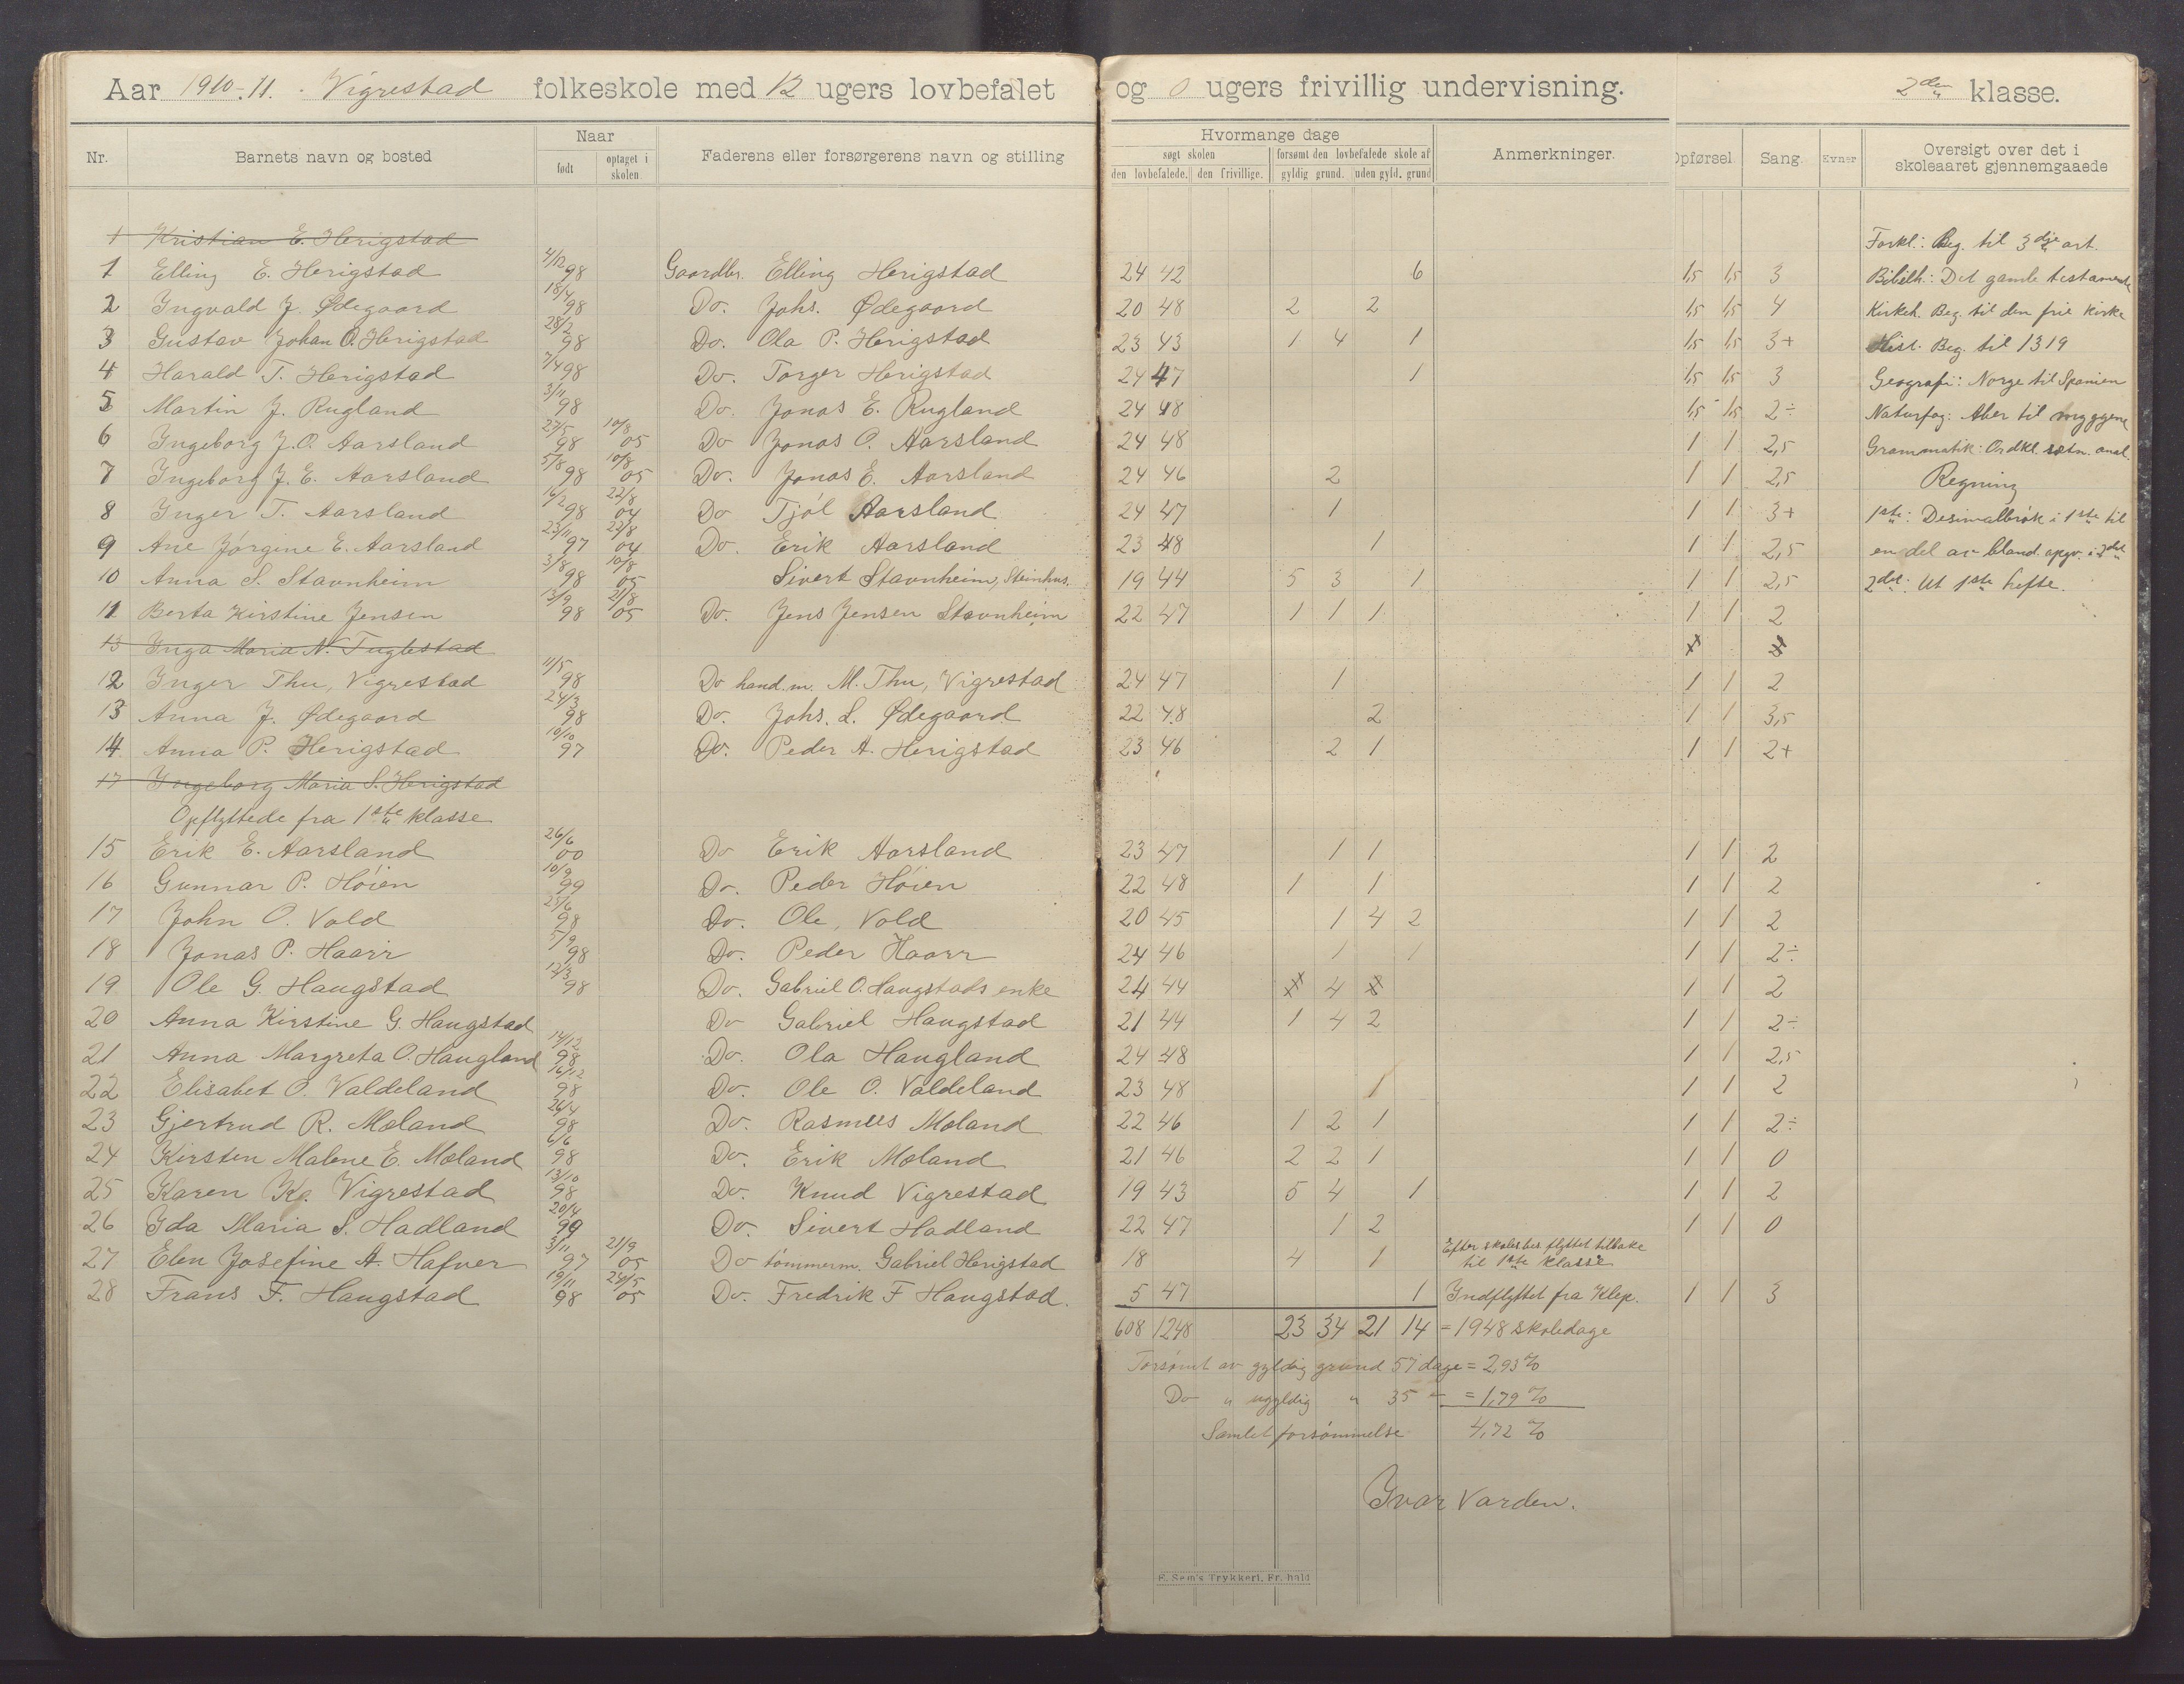 Aar 1910-11. Vigrestad folkeskole med 12 ugers lovbefalet og 0 ugers frivillig undervisning. 2den klasse.
Nr. Barnets navn og bosted Naar født optaget i skolen. Faderens eller forsørgerens navn og stilling
Hvormange dage søgt skolen den lovbefalede. den frivillige. forsømt den lovbefalede skole af gyldig grund. uden gyld. grund Anmerkninger. Opførsel Sang. Evner Oversigt over det i skoleaaret gjennemgaaede
1 Kristian E. Herigstad Forkl.: Beg. til 3dje art.
1 Elling E. Herigstad 4/12 98 Gaardbr. Elling Herigstad 24 42 6 1,5 1,5 3 Bibelh.: Det gamle testamente
2 Ingvald J. Ødegaard 18/4 98 Do. Johs. Ødegaard 20 48 2 2 1,5 1,5 4 Kirkeh. Beg. til den frie Kirke
3 Gustav Johan O. Herigstad 28/2 98 Do. Ola P. Herigstad 23 43 1 4 1 1,5 1,5 3+ Hist. Beg. til 1319
4 Harald T. Herigstad 7/4 98 Do. Torger Herigstad 24 47 1 1,5 1,5 3 Geografi: Norge til Spanien
5 Martin J. Rugland 3/11 98 Do. Jonas E. Rugland 24 48 1,5 1,5 2÷ Naturfag: Aber til myggene
6 Ingeborg J. O. Aarsland 27/5 98 10/8 05 Do Jonas O. Aarsland 24 48 1 1 2,5 Grammatik: Ordkl. sætn. anal.
7 Ingeborg J. E. Aarsland 5/8 98 10/8 05 Do. Jonas E. Aarsland 24 46 2 1 1 2,5 Regning
8 Inger T. Aarsland 16/2 98 22/8 04 Do Tjøl Aarsland 24 47 1 1 1 3+ 1ste: Desimalbrøk i 1ste til
9 Ane Jørgine E. Aarsland 23/11 97 22/8 04 Do. Erik Aarsland 23 48 1 1 1 2,5 en del av bland. opgv. i 2det
10 Anna S. Stavnheim 3/8 98 10/8 05 Sivert Stavnheim, Steinhus. 19 44 5 3 1 1 1 2,5 2det: Ut 1ste hefte.
11 Berta Kirstine Jensen 13/9 98 21/8 05 Do. Jens Jensen Stavnheim 22 47 1 1 1 1 1 2
13 Inga Maria N. Fuglestad
12 Inger Thu, Vigrestad 11/5 98 Do hand.m. M. Thu, Vigrestad 24 47 1 1 1 2
13 Anna J. Ødegaard 24/3 98 Do. Johs. L. Ødegaard 22 48 2 1 1 3,5
14 Anna P. Herigstad 10/10 97 Do. Peder A. Herigstad 23 46 2 1 1 1 2+
17 Ingeborg Maria S. Herigstad
Opflyttede fra 1ste klasse
15 Erik E. Aarsland 26/6 00 Do Erik Aarsland 23 47 1 1 1 1 2
16 Gunnar P. Høien 10/9 99 Do. Peder Høien 22 48 1 1 1 1 2
17 John O. Vold 25/6 98 Do. Ole, Vold 20 45 1 4 2 1 1 2
18 Jonas P. Haarr 5/9 98 Do. Peder Haarr 24 46 1 1 1 1 2÷
19 Ole G. Haugstad 12/3 98 Do. Gabriel O. Haugstads enke 24 44 4 1 1 2
20 Anna Kirstine G. Haugstad Do Gabriel Haugstad 21 44 1 4 2 1 1 2÷
21 Anna Margreta O. Haugland 14/12 98 Do. Ola Haugland 24 48 1 1 2,5
22 Elisabet O. Valdeland 16/12 98 Do. Ole O. Valdeland 23 48 1 1 1 2
23 Gjertrud R. Moland 24/4 98 Do. Rasmus Moland 22 46 1 2 1 1 1 2÷
24 Kirsten Malene E. Moland 6/6 98 Do. Erik Moland 21 46 2 2 1 1 1 0
25 Karen K. Vigrestad 13/10 98 Do. Knud Vigrestad 19 43 5 4 1 1 1 2
26 Ida Maria S. Hadland 20/4 99 Do. Sivert Hadland 22 47 1 2 1 1 0
27 Elen Josefine A. Hafver 3/11 97 21/9 05 Do tømmerm. Gabriel Herigstad 18 4 1 Efter skolestyr. flyttet tilbake til 1ste klasse
28 Frans F. Haugstad 19/11 98 24/5 05 Do. Fredrik F Haugstad. 5 47 1 Indflyttet fra Klep. 1 1 3
608 1248 23 34 21 14 = 1948 skoledage
Forsømt av gyldig grund 57 dage = 2,93 %
Do „ ugyldig „ 35 „ = 1,79 %
Samlet forsømmelse 4,72 %
Ivar Varden.
E. Sem's Trykkeri, Fr.hald